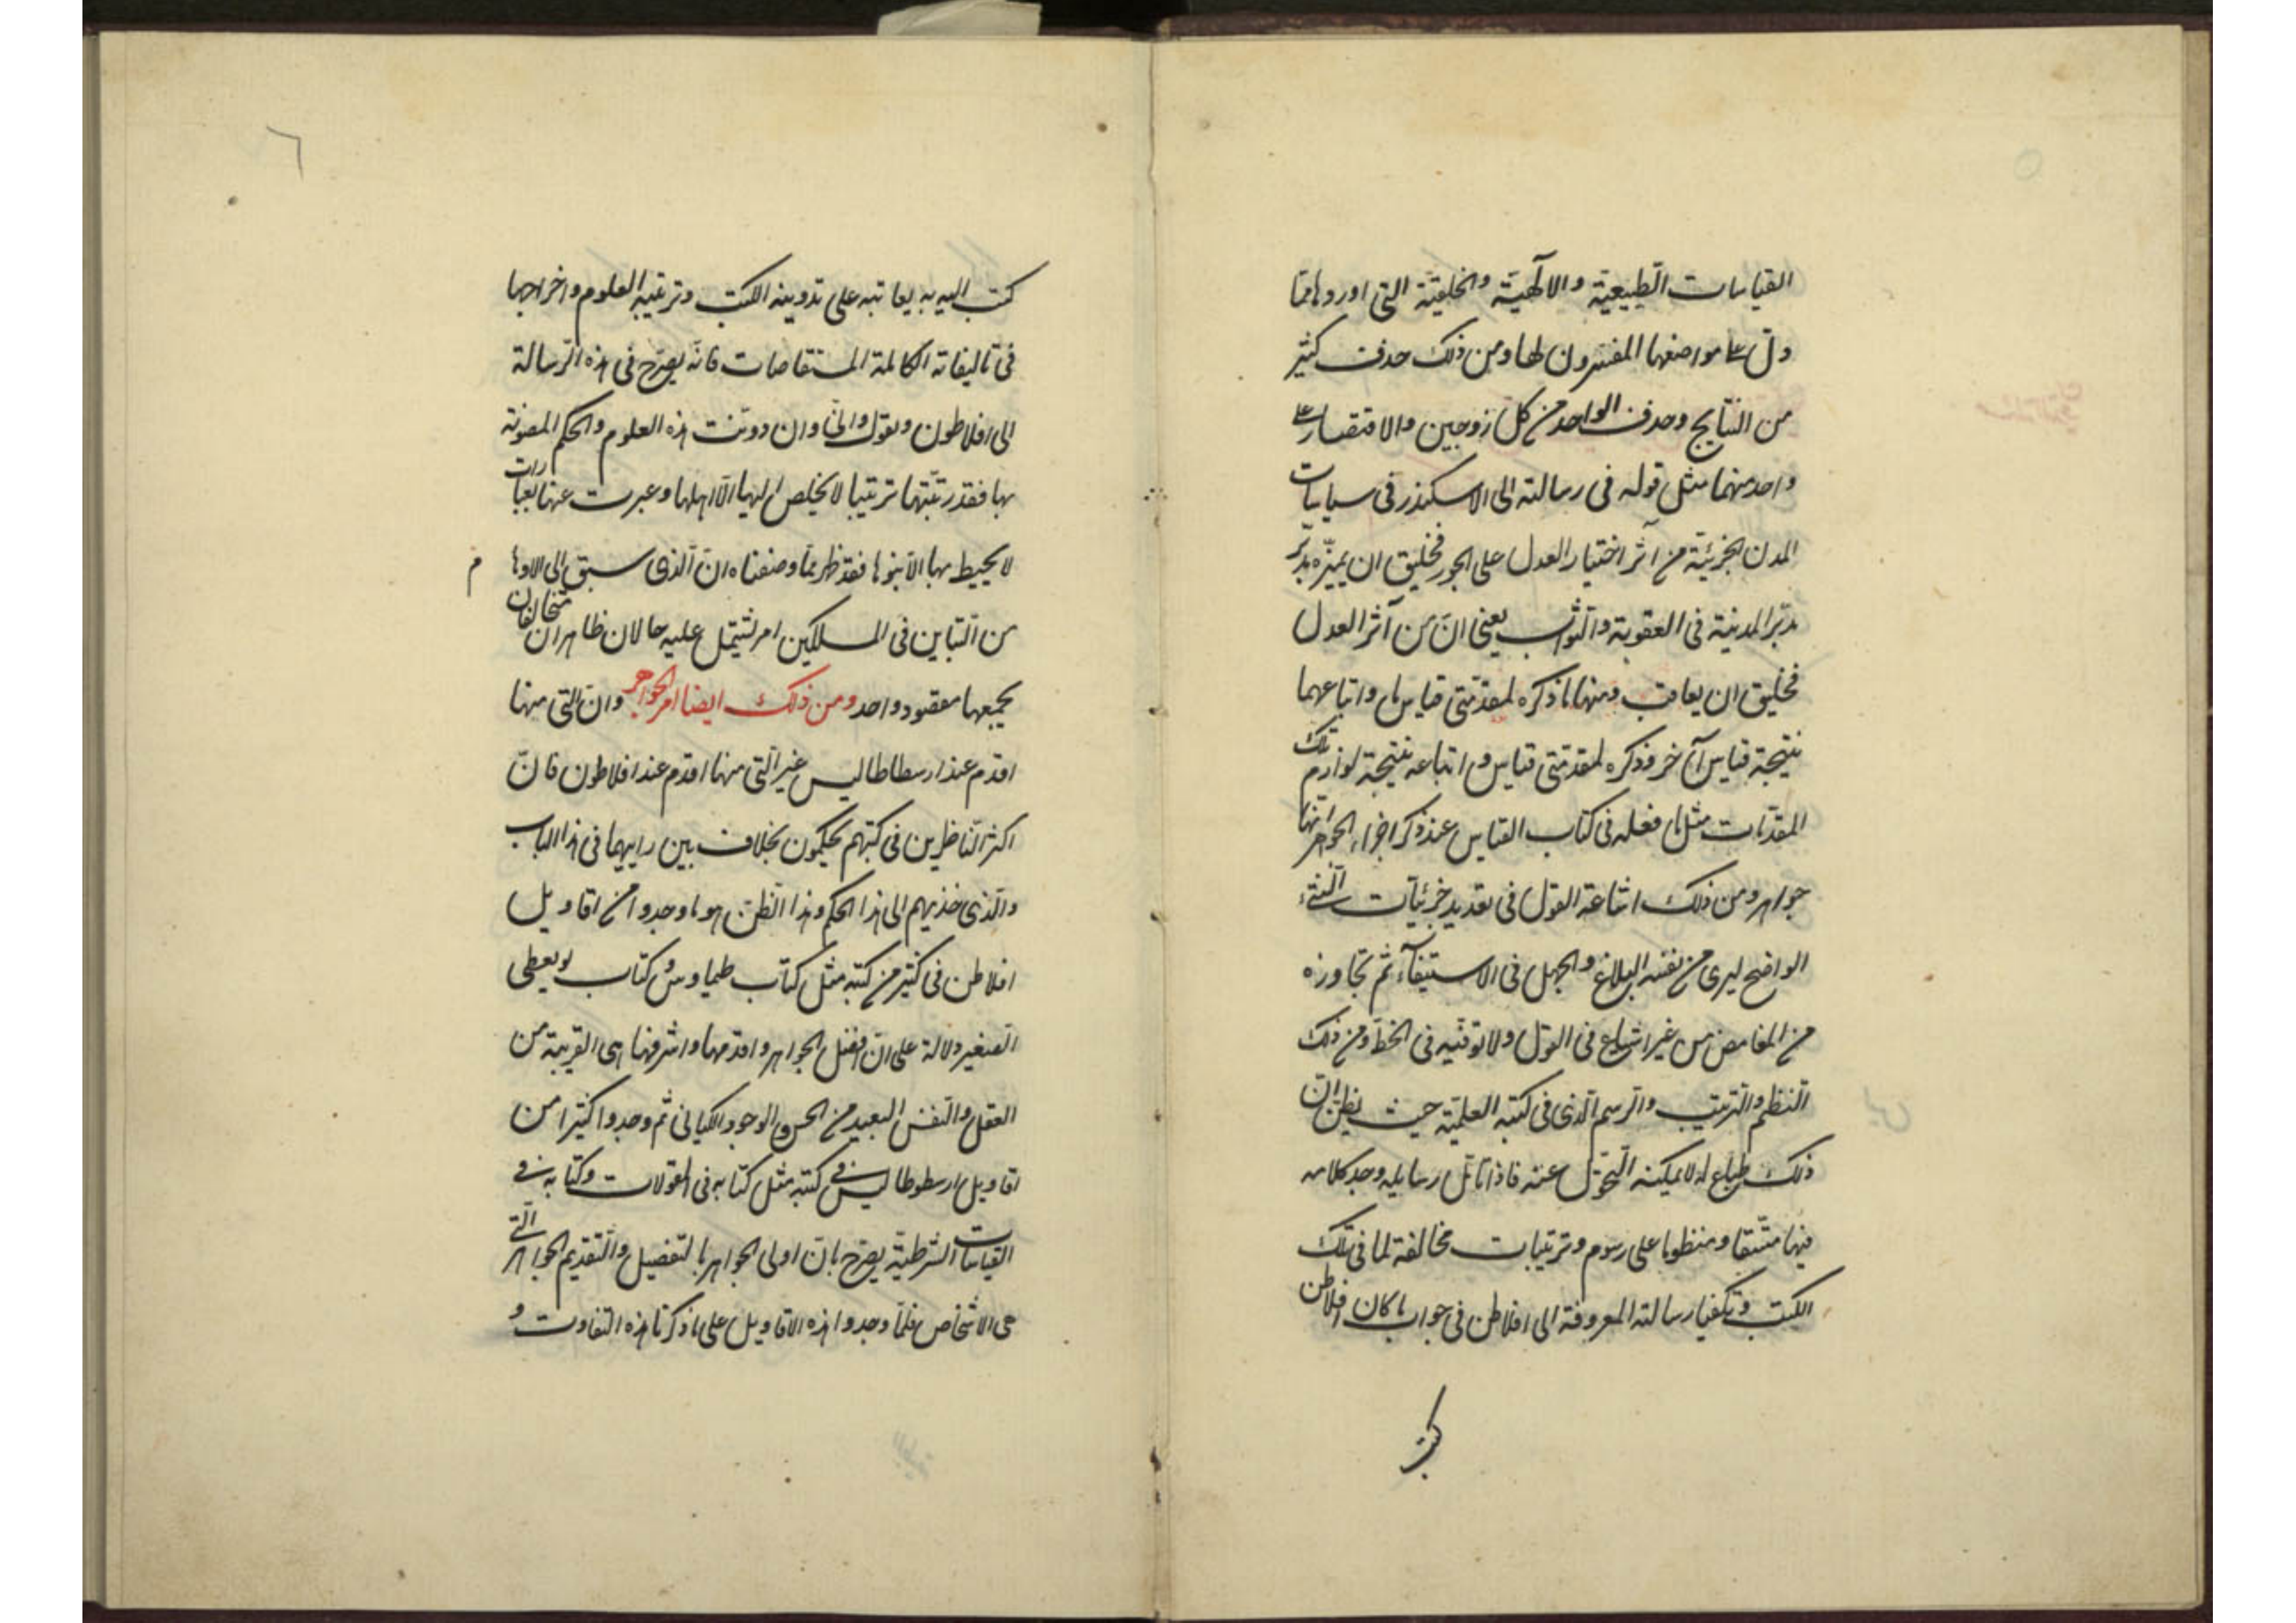 القياسات الطبيعية والالهية والخلقية التى اوردها مما
دل على مواضعها المفسرون لها ومن ذلك حذف كثير
من النتايج وحذف الواحد من كل زوجين والاقتصار على
واحد منهما مثل قوله فى رسالته الى الاسكندر فى سياسات
المدن الجزئية من آثر اختيار العدل على الجور فخليق ان يميزه مدبر
مدبر المدينة فى العقوبة والثواب يعنى ان من آثر العدل
فخليق ان يعاقب ومنها ما ذكره لمقدمتى قياس ما واتباعهما
نتيجة قياس آخر وذكره لمقدمتى قياس واتباعه نتيجة لوازم تلك
المقدمات مثل ما فعله فى كتاب القياس عند ذكر اجزاء الجواهر انها
جواهر ومن ذلك اشاعة القول فى تعديد جزئيات الشئ
الواضح ليرى من نفسه البلاغ والجهل فى الاستيفآء ثم تجاوزه
من الغامض من غير اشباع فى القول ولا توفيه فى الخط ومن ذلك
النظم والترتيب والرسم الذى فى كتبه العلمية حيث يظن ان
ذلك طباع له لا يمكنه التحول عنه فاذا تامل رسايله وجد كلامه
فيها متسقا ومنظوما على رسوم وترتيبات مخالفة لما فى تلك
الكتب وتكفينا رسالته المعروفة الى افلاطن فى جواب ما كان افلاطن
كتب
٦
كتب اليه به يعاتبه على تدوينه الكتب وترتيبه العلوم واخراجها
فى تاليفاته الكاملة المستقاصات فانه يصرح فى هذه الرسالة
الى افلاطون ويقول وانى وان دونت هذه العلوم والحكم المصونة
بها فقد رتبتها ترتيبا لا يخلص اليها الا اهلها وعبرت عنها بعبارات
لا يحيط بها الا بنوها فقد ظهر مما وصفناه ان الذى سبق الى الاوهام
من التباين فى المسلكين امر يشتمل عليه حالان ظاهران متخالفان
يجمعها مقصود واحد ومن ذلك ايضا امر الجواهر وان التى منها
اقدم عند ارسطاطاليس غير التى منها اقدم عند افلاطون فان
اكثر الناظرين فى كتبهم يحكمون بخلاف بين راييهما فى هذا الباب
والذى جذبهم الى هذا الحكم وهذا الظن هو ما وجدوا من اقاويل
افلاطن فى كثير من كتبه مثل كتاب طيماوس وكتاب بوليطى
الصغير دلالة على ان افضل الجواهر واقدمها واشرفها هى القريبة من
العقل والنفس البعيد من الحس والوجود الكيانى ثم وجدوا كثيرا من
اقاويل ارسطوطاليس فى كتبه مثل كتابه فى المقولات وكتابه فى
القياسات الشرطية يصرح بان اولى الجواهر بالتفضيل والتقديم الجواهر التى
هى الاشخاص فلما وجدوا هذه الاقاويل على ما ذكرنا هذه التفاوت و